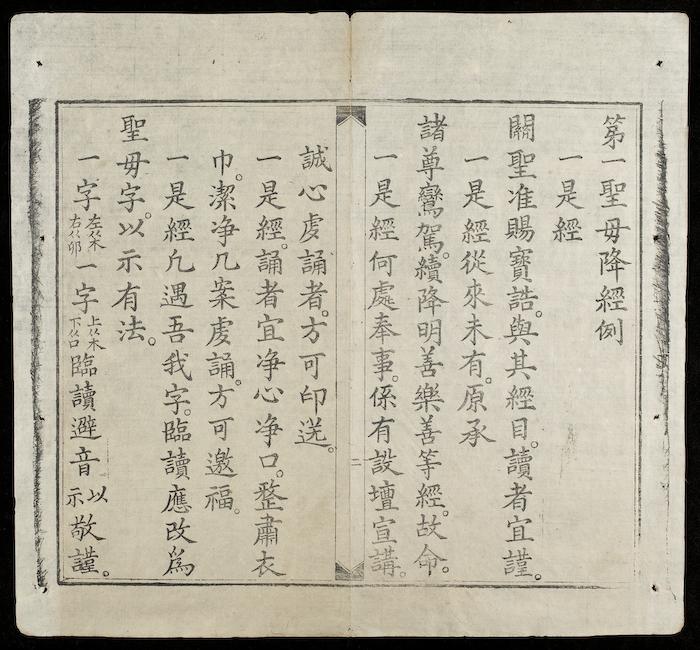 第一聖毋降經例
一是經
關聖准賜寶誥。與其經目。讀者宜謹。
一是經從來未有。原承
諸尊鸞駕。續降明善樂善等經。故命。
一是經何處奉事。係有設壇宣講。
二
誠心虔誦者。方可印送。
一是經。誦者宜净心净口。整肅衣
巾。潔净几案虔誦。方可邀福。
一是經凢遇吾我字。臨讀應改爲
聖毋字。以示有法。
一字左从木右从卯一字上从木下从口臨讀避音以示敬謹。